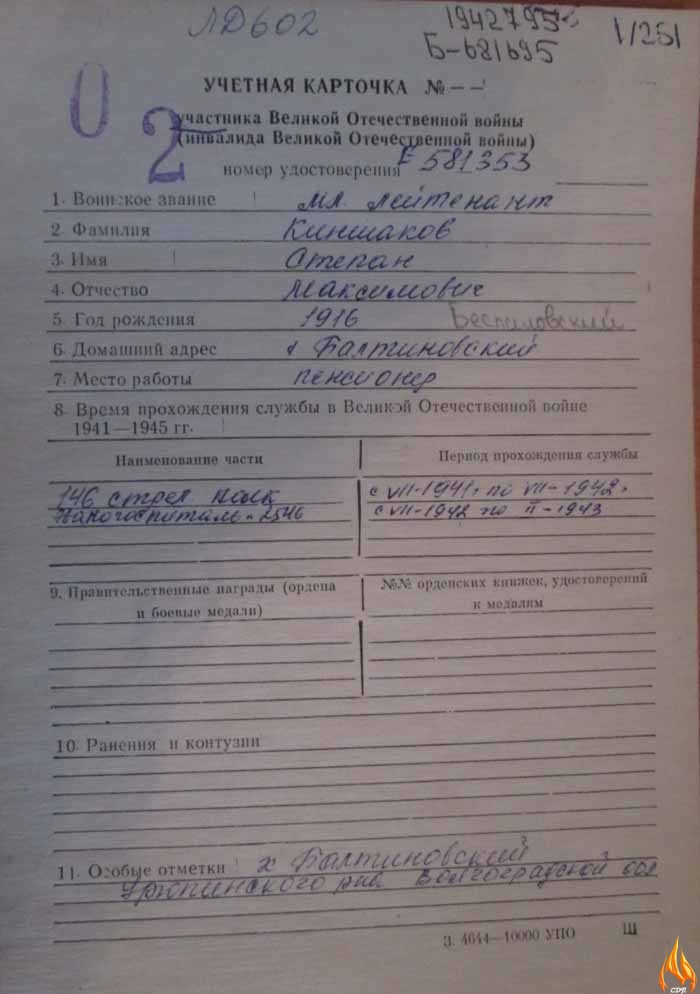 ЛД602
1942795
Б-681695
1/251
УЧЕТНАЯ КАРТОЧКА № — —
0
2
участника Великой Отечественной войны
(инвалида Великой Отечественной войны)
номер удостоверения Е 581353
1. Воинское звание мл. лейтенант
2. Фамилия Киншаков
3. Имя Степан
4. Отчество Максимович
5. Год рождения 1916 Беспаловский
6. Домашний адрес х Балтиновский
7. Место работы пенсионер
8. Время прохождения службы в Великой Отечественной войне
1941—1945 гг.
Наименование части
Период прохождения службы
146 стрел. полк
с VII-1941г по VII-1942г
эвакогоспиталь 2546
с VII-1942 по II-1943
9. Правительственные награды (ордена
и боевые медали)
№№ орденских книжек, удостоверений
к медалям
10. Ранения и контузии
11. Особые отметки х Балтиновский
Урюпинского р-на Волгоградской обл
З. 4644—10000 УПО
Ш
CDR